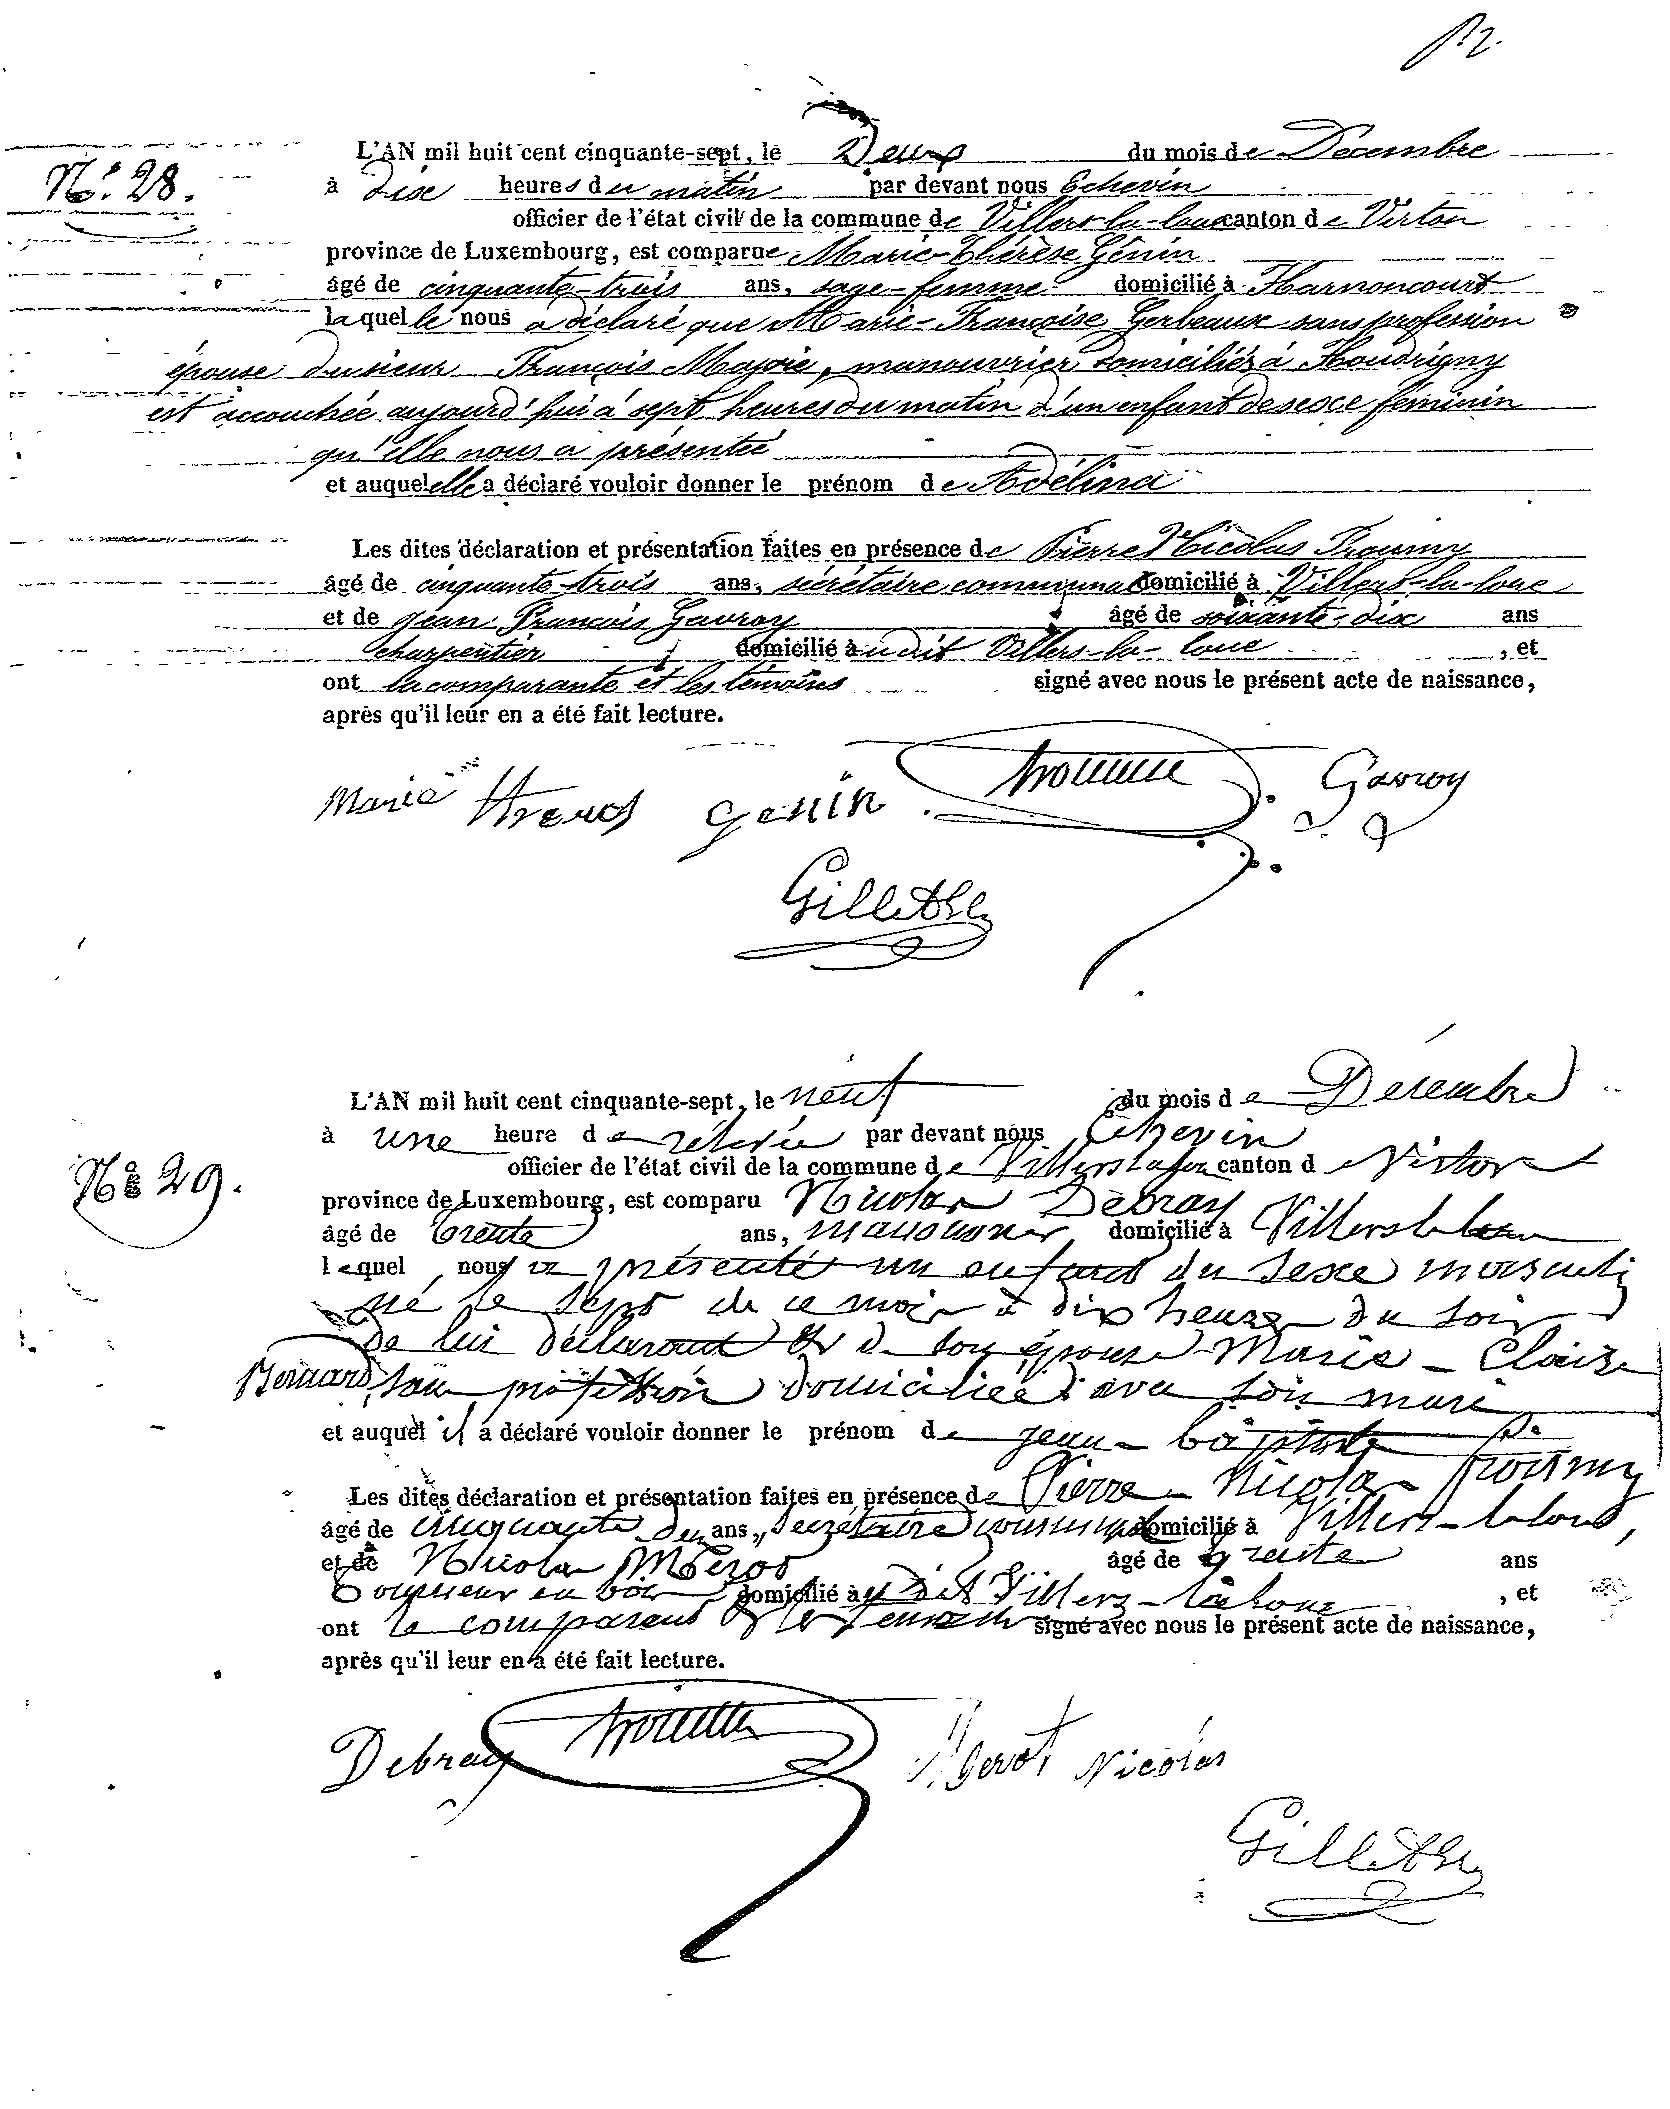 N° 28.
L'AN mil huit cent cinquante-sept, le Deux du mois de Décembre
à dix heures du matin par devant nous Echevin
officier de l'état civil de la commune de Villers-la-loue canton de Virton
province de Luxembourg, est comparue Marie-Thérèse Génin
âgé de cinquante-trois ans, sage-femme domicilié à Harnoncourt
laquelle nous a déclaré que Marie-Françoise Gerbeaux sans profession
épouse du sieur François Majoie, manouvrier domiciliés à Houdrigny
est accouchée aujourd'hui à sept heures du matin d'un enfant de sexe féminin
qu'elle nous a présentée
et auquel elle a déclaré vouloir donner le prénom de Adélina
Les dites déclaration et présentation faites en présence de Pierre Nicolas Proumy
âgé de cinquante-trois ans, sécrétaire communal domicilié à Villers-la-loue
et de jean François Gavroy âgé de soixante-dix ans
charpentier domicilié audit Villers-la-loue , et
ont la comparante et les témoins signé avec nous le présent acte de naissance,
après qu'il leur en a été fait lecture.
Marie genin Gavroy
N° 29.
L'AN mil huit cent cinquante-sept, le neuf du mois de Décembre
à une heure de rélevée par devant nous Echevin
officier de l'état civil de la commune de Villerslaloue canton de Virton
province de Luxembourg, est comparu Nicolas Debray
âgé de trente ans, manouvrier domicilié à Villerslaloue
lequel nous a présenté un enfant du sexe masculin
né le sept de ce mois à dix heures du soir
de lui déclarant & de son épouse Marie-Claire
Bernard, sans profession domiciliée avec son mari
et auquel il a déclaré vouloir donner le prénom de jean-baptiste
Les dites déclaration et présentation faites en présence de Pierre-Nicolas Proumy
âgé de cinquante ans, Secrétaire communal domicilié à Villers-laloue,
et de Nicolas Mgerot âgé de trente ans
domicilié audit Villers-laloue , et
ont le comparant & les temoins signé avec nous le présent acte de naissance,
après qu'il leur en a été fait lecture.
Debray Nicolas